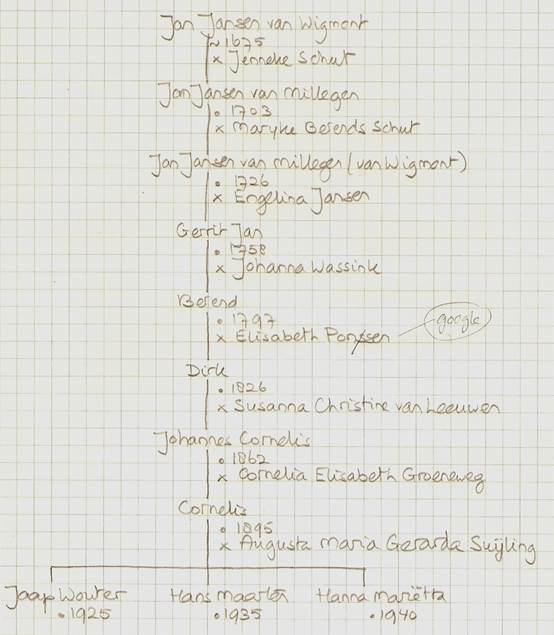 Jan Jansen van Wigmont
~ 1675
x Jenneke Schut
Jan Jansen van Millegen
• 1703
x Maryke Berends Schut
Jan Jansen van Millegen (van Wigmont)
• 1726
x Engelina Jansen
Gerrit Jan
• 1758
x Johanna Wassink
Berend
• 1797
x Elisabeth google
Dirk
• 1826
x Susanna Christine van Leeuwen
Johannes Cornelis
• 1862
x Cornelia Elisabeth Groeneweg
Cornelis
• 1895
x Augusta Maria Gerarda Suijling
Jaap Wouter Hans Maarten Hanna Mariëtta
• 1925 • 1935 • 1940